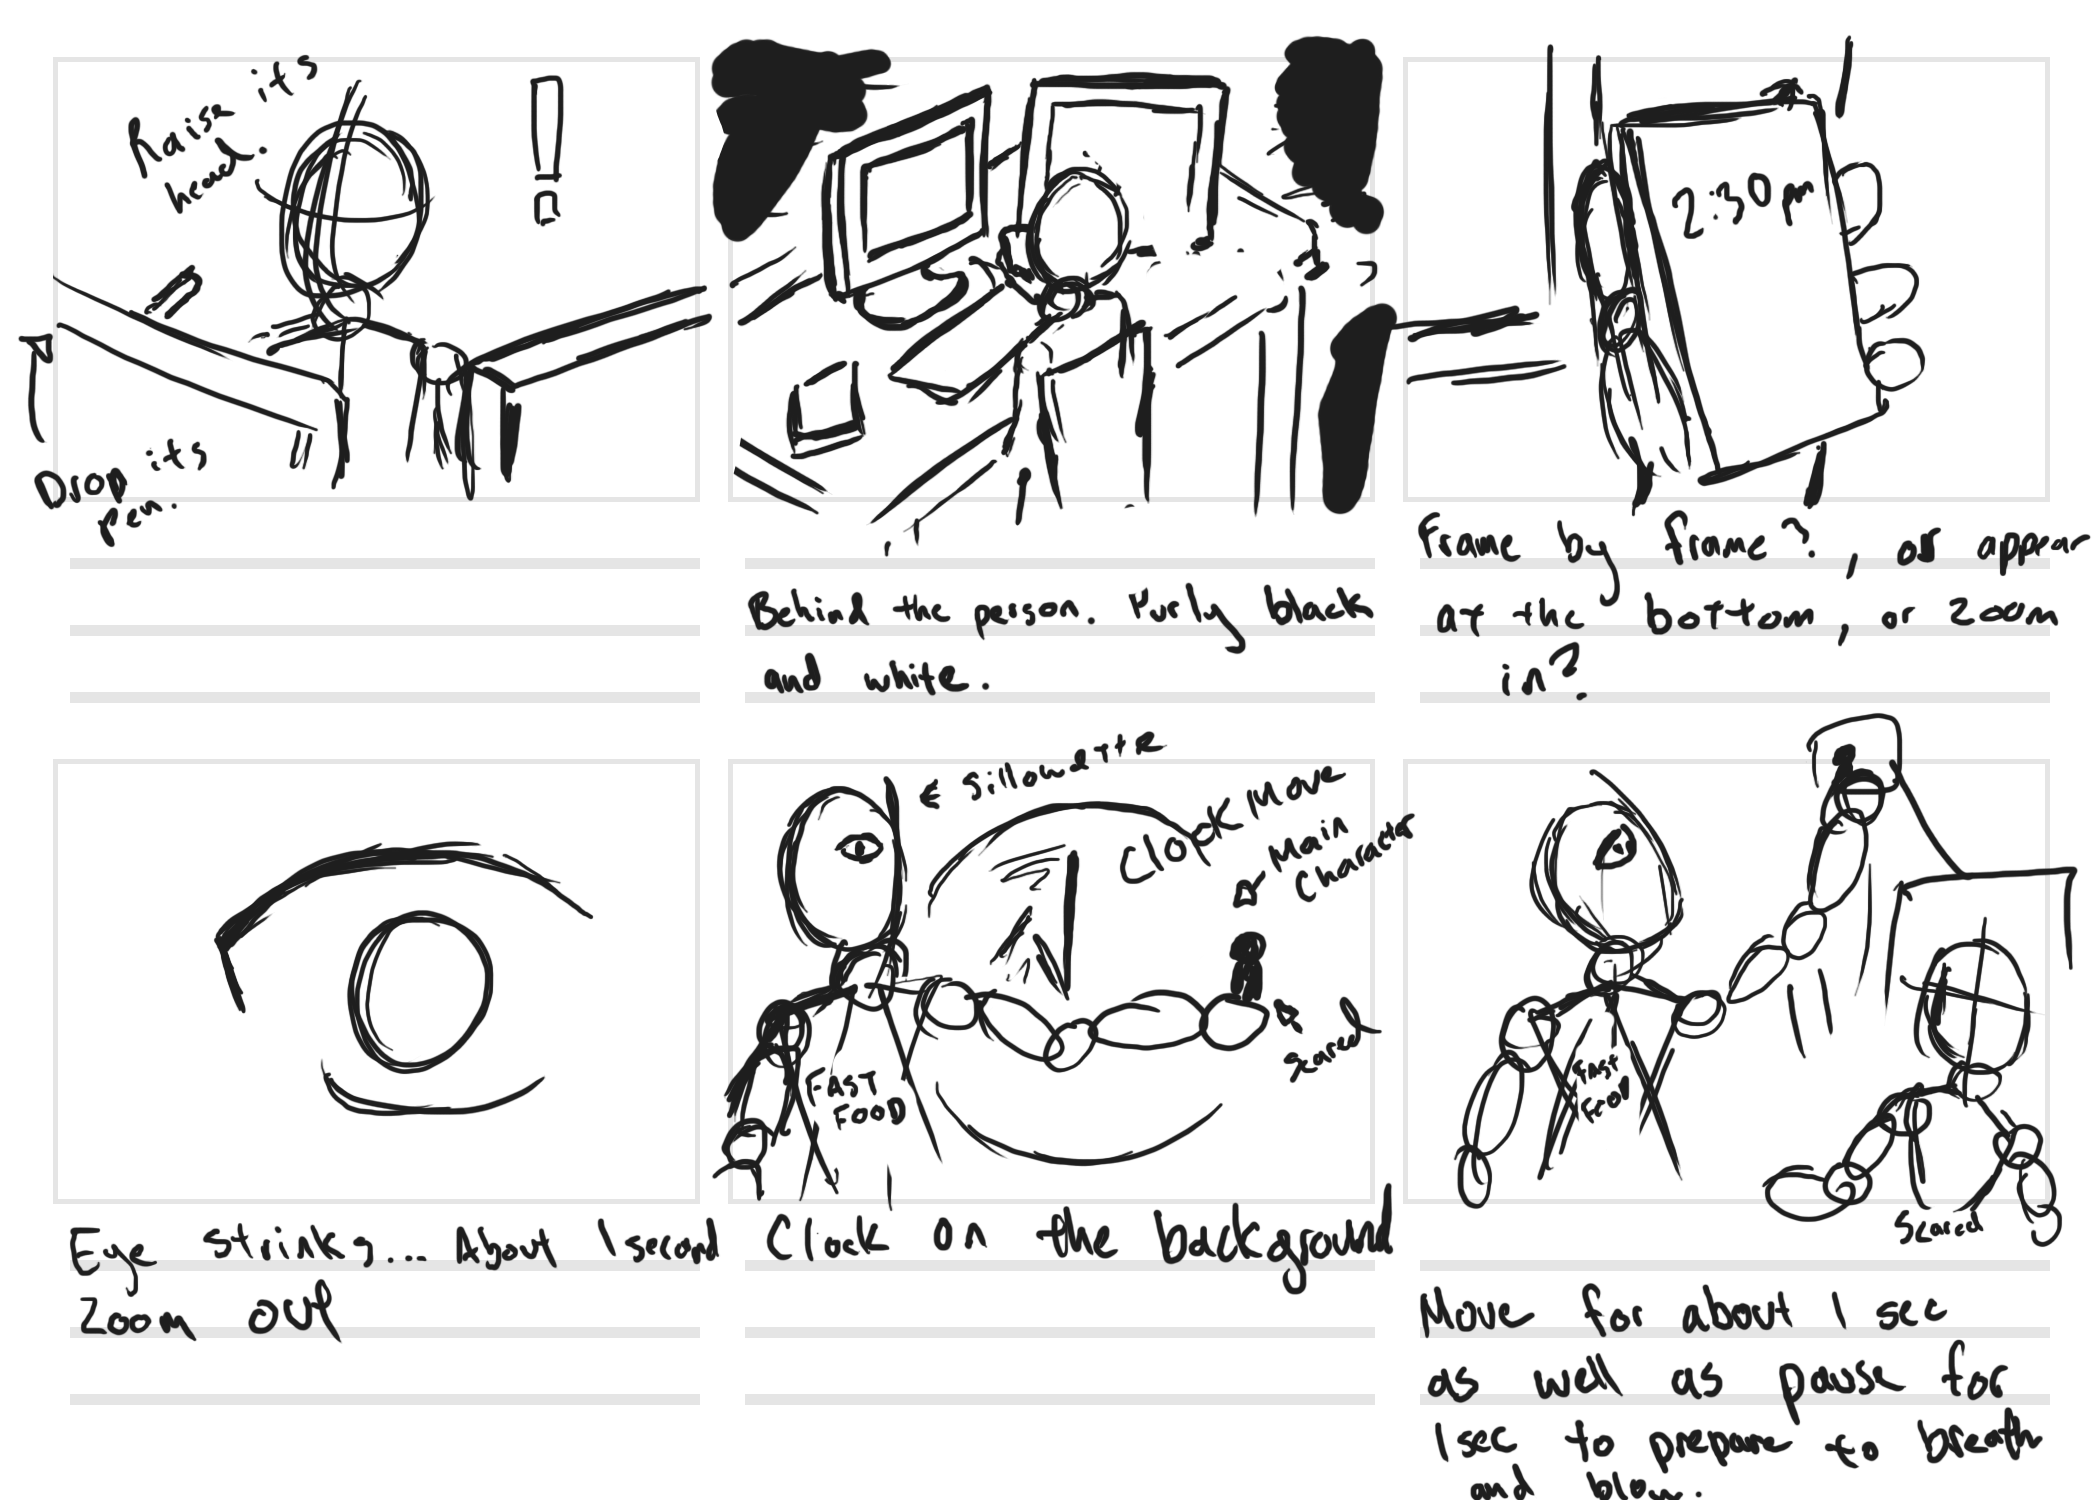 Raise its
head.
Drop its
pen.
Behind the person. Purly black
and white.
2:30 pm
Frame by frame?, or appear
at the bottom, or zoom
in?
Eye strinks... About 1 second
Zoom out
Sillowette
Clock Move
Main
Character
Scared
FAST
FOOD
Clock on the background
FAST
FOOD
Scared
Move for about 1 sec
as well as pause for
1 sec to prepare to breath
and blow.